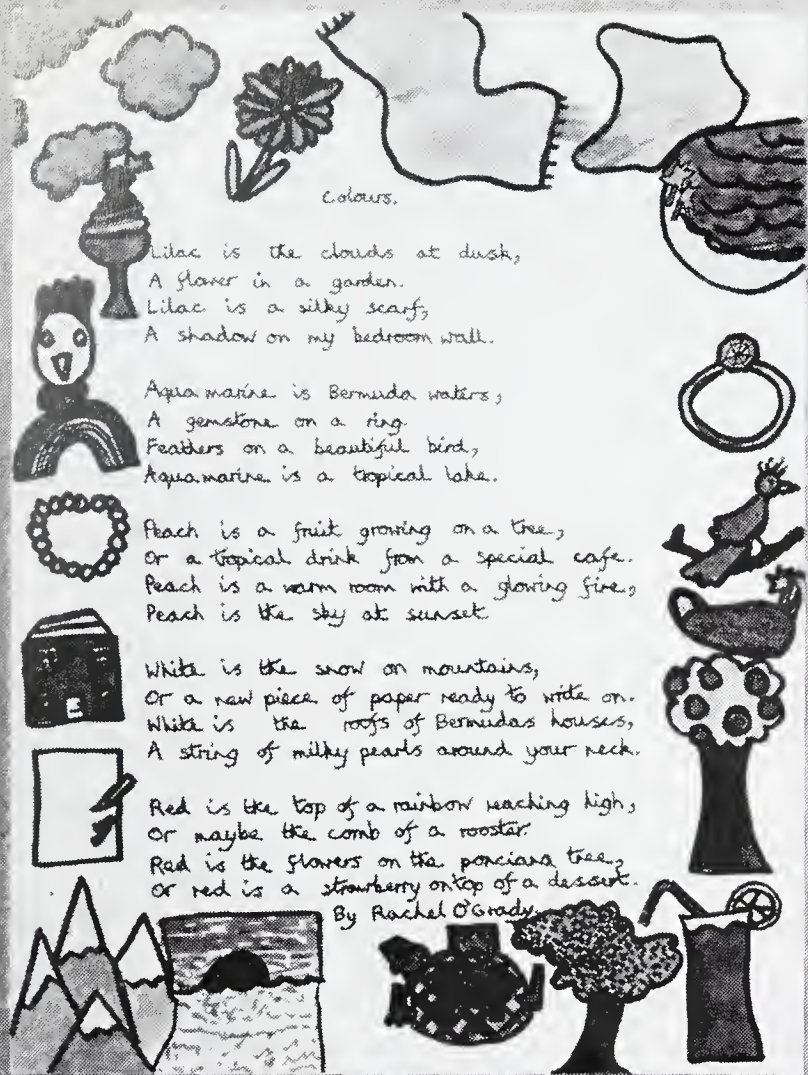 Colours.
Lilac is the clouds at dusk,
A flower in a garden.
Lilac is a silky scarf,
A shadow on my bedroom wall.
Aquamarine is Bermuda waters,
A gemstone on a ring.
Feathers on a beautiful bird,
Aquamarine is a tropical lake.
Peach is a fruit growing on a tree,
Or a tropical drink from a special cafe.
Peach is a warm room with a glowing fire,
Peach is the sky at sunset
White is the snow on mountains,
Or a new piece of paper ready to write on.
White is the roofs of Bermudas houses,
A string of milky pearls around your neck.
Red is the top of a rainbow reaching high,
Or maybe the comb of a rooster.
Red is the flowers on the ponciana tree,
Or red is a strawberry ontop of a dessert.
By Rachel O'Grady